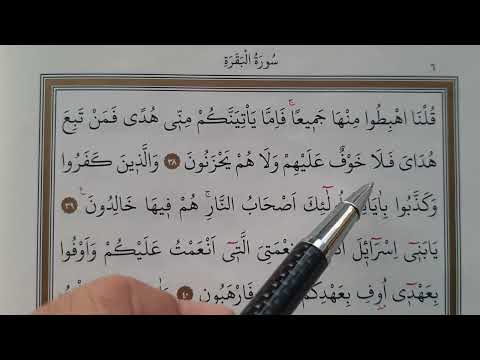 سُورَةُ الْبَقَرَةِ ٦
قُلْنَا اهْبِطُوا مِنْهَا جَمٖيعًاۚ فَاِمَّا يَأْتِيَنَّكُمْ مِنّٖى هُدًى فَمَنْ تَبِعَ
هُدَاىَ فَلَا خَوْفٌ عَلَيْهِمْ وَلَا هُمْ يَحْزَنُونَ ٣٨ وَالَّذٖينَ كَفَرُوا
وَكَذَّبُوا اَصْحَابُ النَّارِۚ هُمْ فٖيهَا خَالِدُونَ ٣٩
يَابَنٖٓى اِسْرَٓائٖلَ نِعْمَتِىَ الَّتٖٓى اَنْعَمْتُ عَلَيْكُمْ وَاَوْفُوا
بِعَهْدٖٓى اُوفِ بِعَهْدِكُمْ فَارْهَبُونِ ٤٠